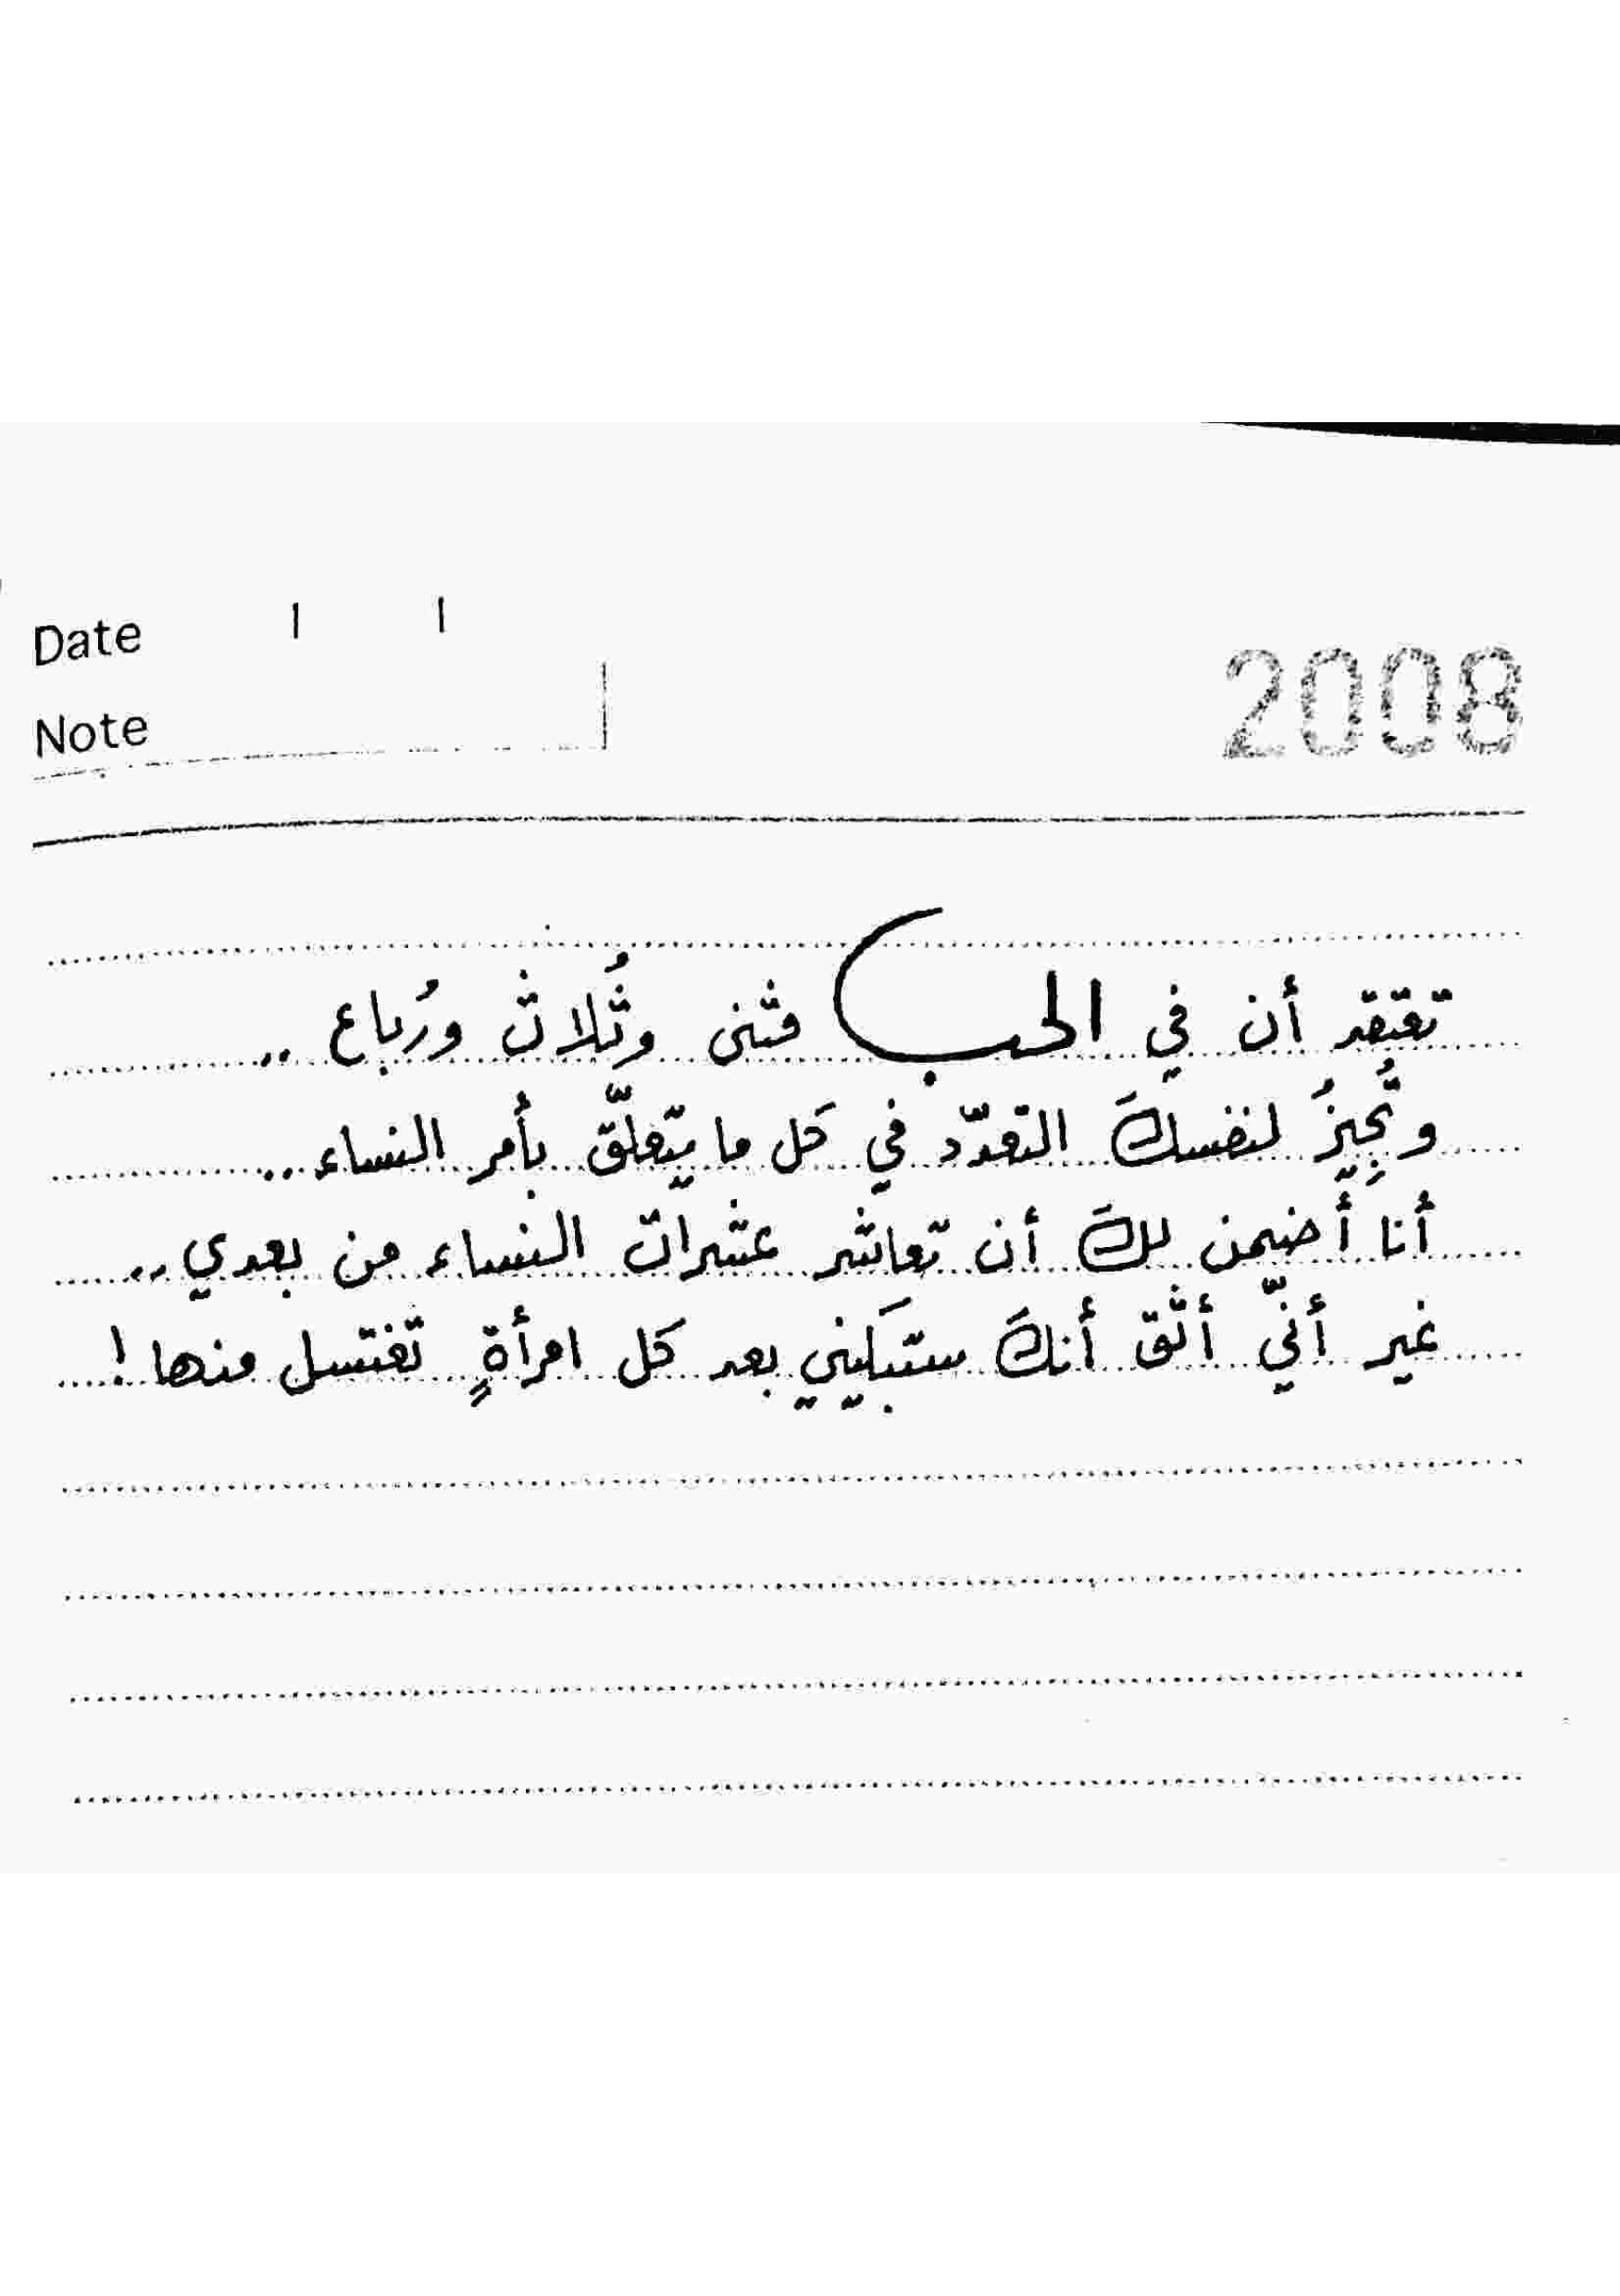 Date / /
2008
Note
تعتقد أن في الحب مثنى وثُلاث ورُباع ..
وتُجِيزُ لنفسكَ التعدّد في كل ما يتعلّق بأمر النساء ..
أنا أضمن لكَ أن تعاشر عشرات النساء من بعدي ..
غير أنّي أثق أنكَ ستبكيني بعد كل امرأةٍ تغتسل منها !